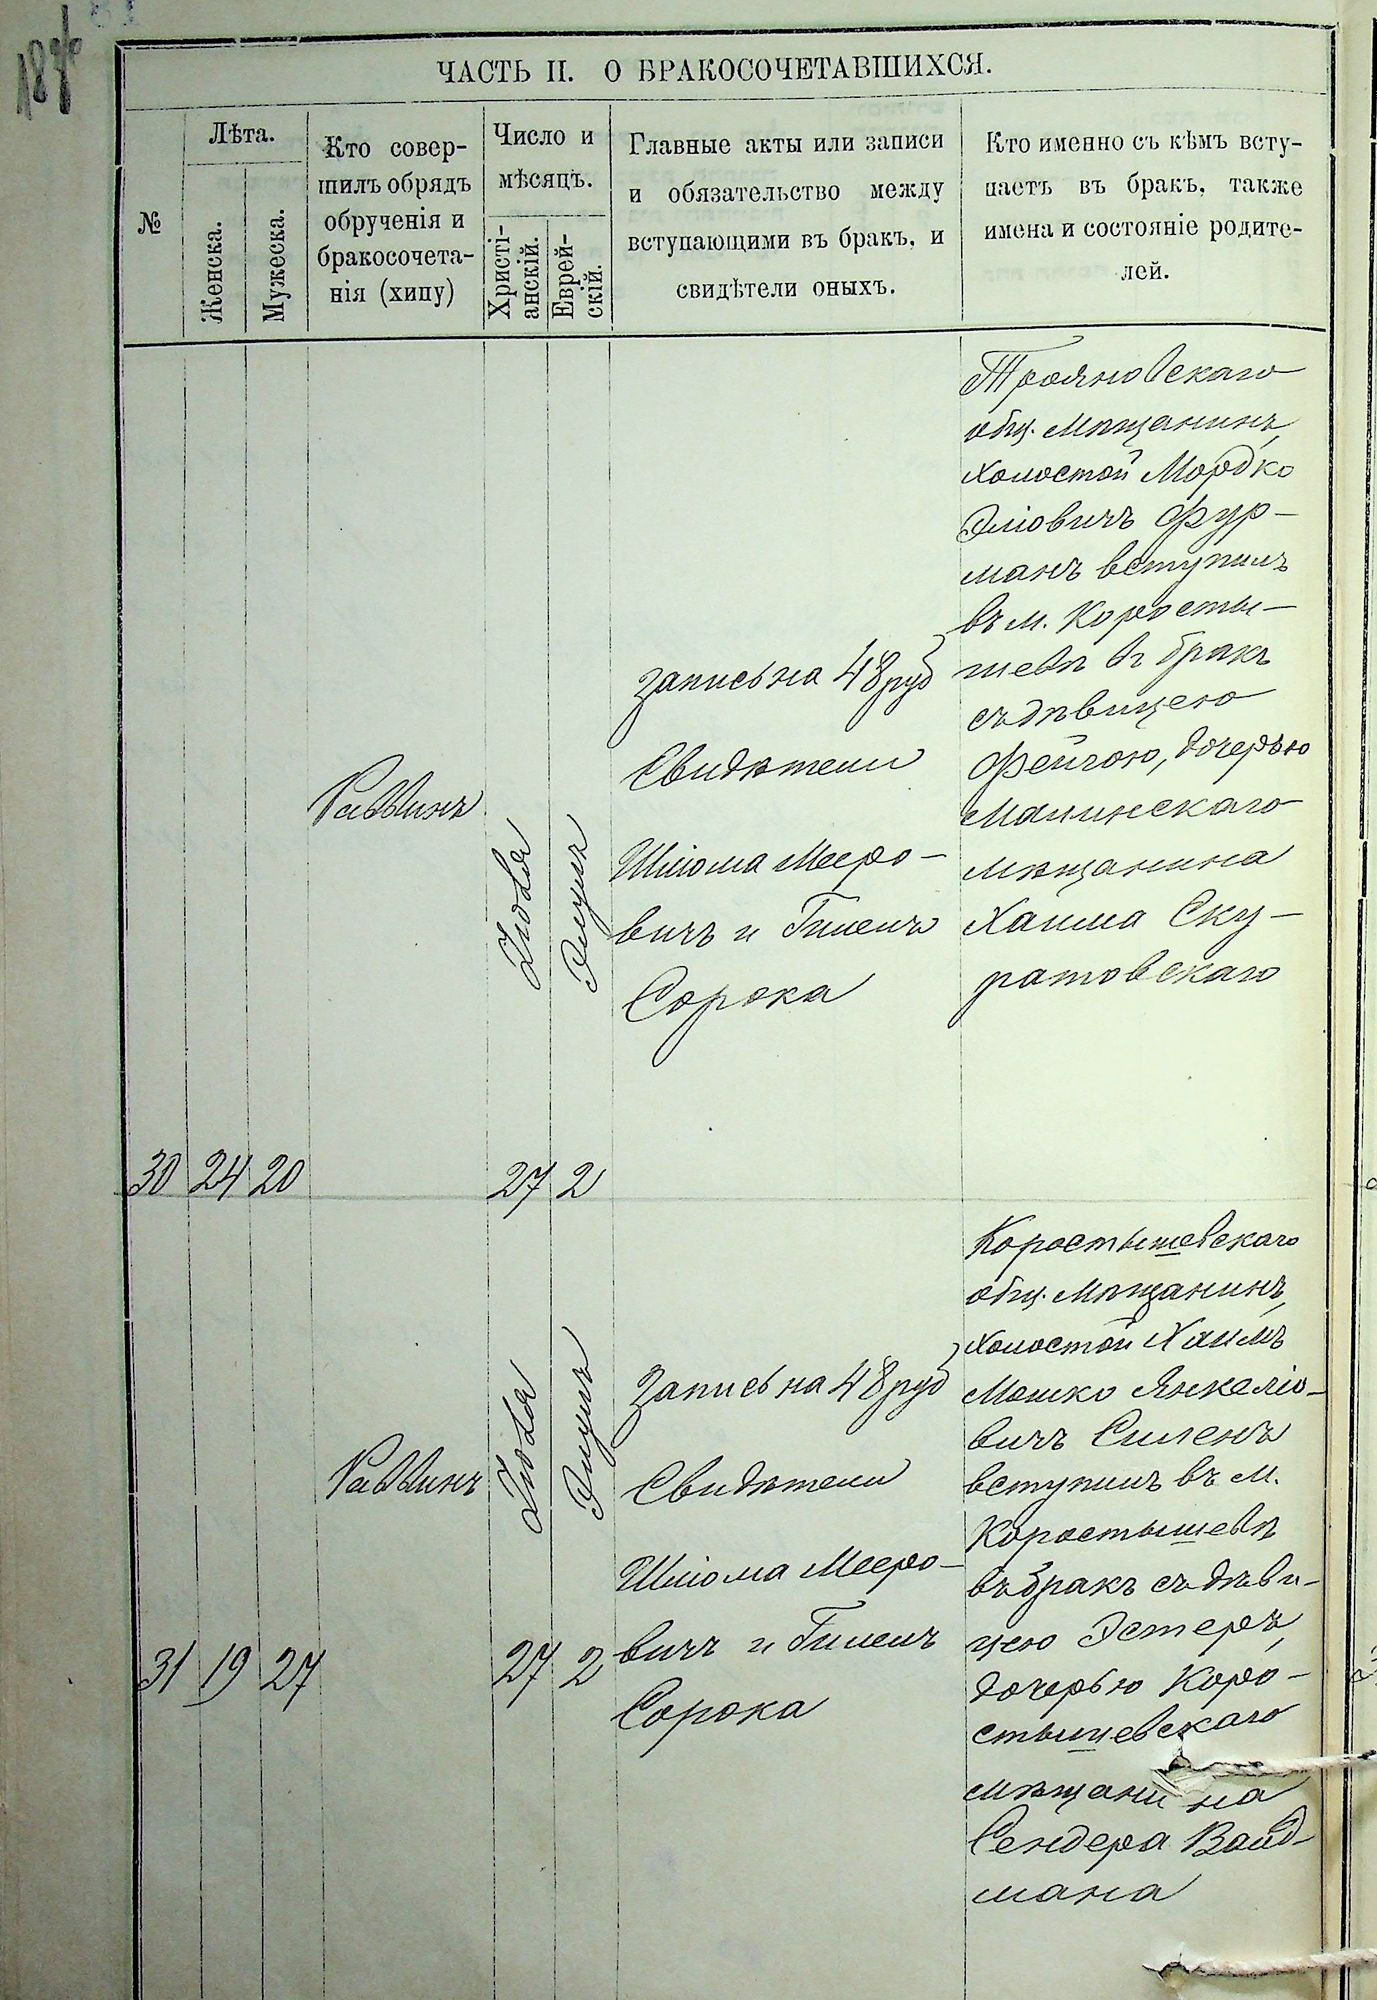 ЧАСТЬ II. О БРАКОСОЧЕТАВШИХСЯ.
№
Лѣта.
Женска.
Мужеска.
Кто совер-
шилъ обрядъ
обрученія и
бракосочета-
нія (хипу)
Число и
мѣсяцъ.
Христі-
анскій.
Еврей-
скій.
Главные акты или записи
и обязательство между
вступающими въ бракъ, и
свидѣтели оныхъ.
Кто именно съ кѣмъ всту-
паетъ въ бракъ, также
имена и состояніе родите-
лей.
30
24
20
Раввинъ
Iюля
27
Элулъ
2
Запись на 48 руб
Свидѣтели
Шлiома Мееро-
вичъ и Гилелъ
Сорока
Трояновскаго
общ. мѣщанинъ,
холостой Мордко
Элiовичъ Фур-
манъ вступилъ
въ м. Коросты-
шевѣ въ бракъ
съ дѣвицею
Фейгою, дочерью
Малинскаго
мѣщанина
Хаима Ску-
ратовскаго
31
19
27
Раввинъ
Iюля
27
Элулъ
2
Запись на 48 руб
Свидѣтели
Шлiома Мееро-
вичъ и Гилелъ
Сорока
Коростышевскаго
общ. мѣщанинъ,
холостой Хаимъ
Мошко Янкелiо-
вичъ
вступилъ въ м.
Коростышевѣ
въ бракъ съ дѣви-
цею Эстеръ,
дочерью Коро-
стышевскаго
мѣщанина
Сендера Вайд-
мана